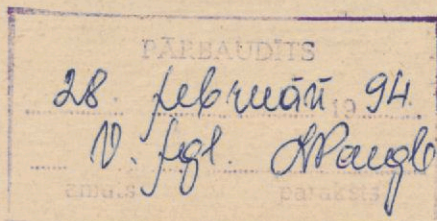 PĀRBAUDĪTS
28. februārī 1994.
V.
amats paraksts